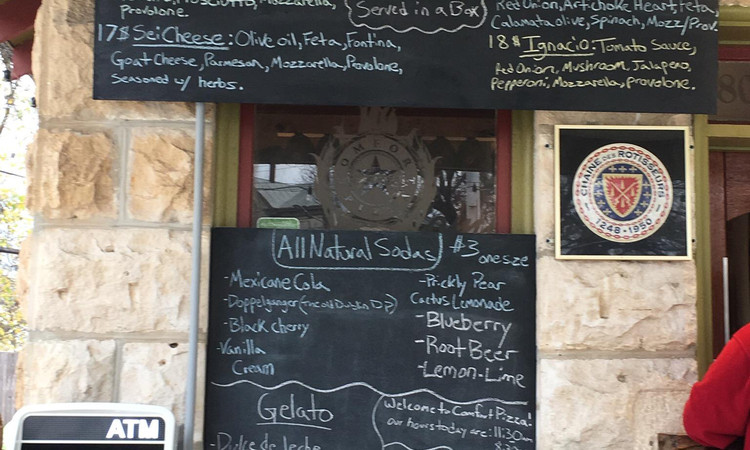 Mozzarella,
Provolone.
17$ Sei Cheese: Olive oil, Feta, Fontina,
Goat Cheese, Parmesan, Mozzarella, Provolone,
Seasoned w/ herbs.
Served in a Box
Red Onion, Artichoke Heart, Feta,
Calamata olive, Spinach, Mozz/Prov.
18$ Ignacio: Tomato Sauce,
Red Onion, Mushroom, Jalapeno,
Pepperoni, Mozzarella, provolone.
COMFORT
CHAINE DES ROTISSEURS
1248-1950
All Natural Sodas $3 one size
-Mexicane Cola
-Doppelganger (The old Dublin D.P)
-Black cherry
-Vanilla
Cream
-Prickly Pear
Cactus Lemonade
-Blueberry
-Root Beer
-Lemon-Lime
Gelato
-Dulce de leche
Welcome to Comfort Pizza!
our hours today are: 11:30am
8:30
ATM